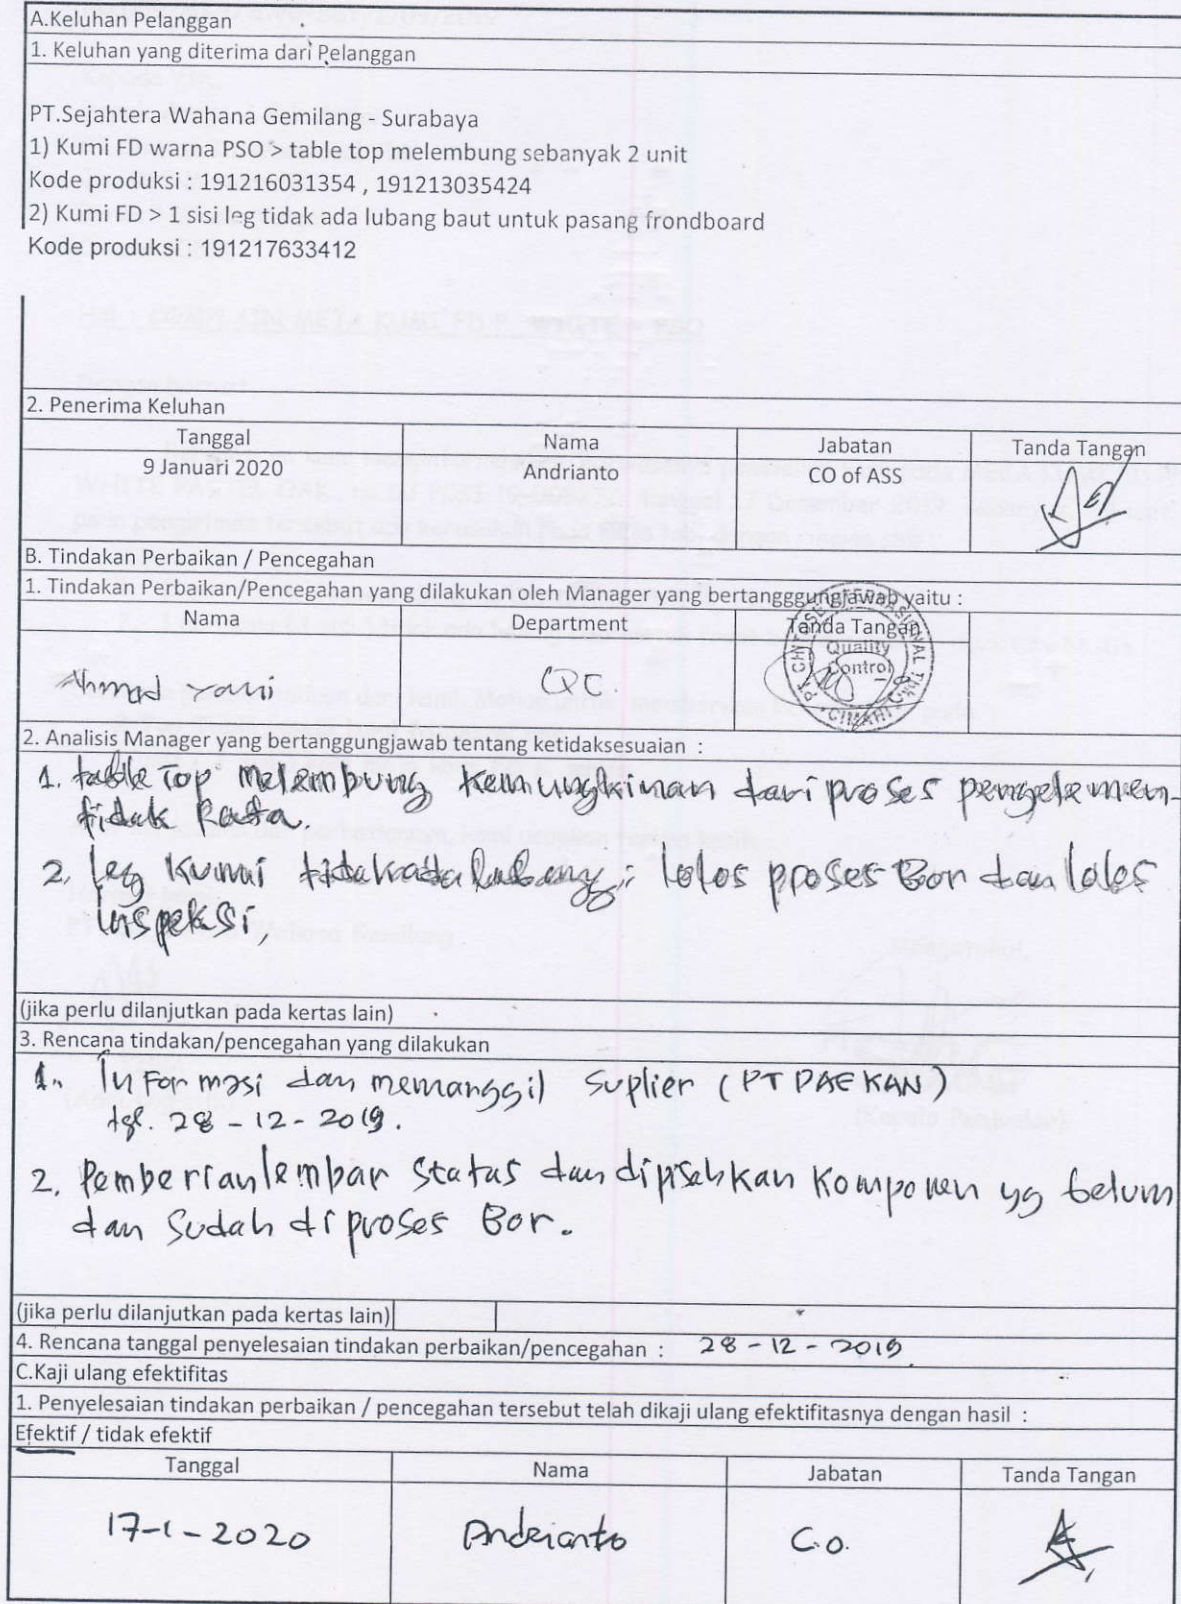 A.Keluhan Pelanggan
1. Keluhan yang diterima dari Pelanggan
PT.Sejahtera Wahana Gemilang - Surabaya
1) Kumi FD warna PSO > table top melembung sebanyak 2 unit
Kode produksi : 191216031354 , 191213035424
2) Kumi FD > 1 sisi leg tidak ada lubang baut untuk pasang frondboard
Kode produksi : 191217633412
2. Penerima Keluhan
Tanggal Nama Jabatan Tanda Tangan
9 Januari 2020 Andrianto CO of ASS
B. Tindakan Perbaikan / Pencegahan
1. Tindakan Perbaikan/Pencegahan yang dilakukan oleh Manager yang bertangggungjawab yaitu :
Nama Department Tanda Tangan
Ahmad Yani QC
Quality
Control
CIMAHI
2. Analisis Manager yang bertanggungjawab tentang ketidaksesuaian :
1. table Top melembung kemungkinan dari proses pengeleman
tidak Rata.
2. Leg Kumi tidak ada lubang ; lolos proses Bor dan lolos
inspeksi,
(jika perlu dilanjutkan pada kertas lain)
3. Rencana tindakan/pencegahan yang dilakukan
1. Informasi dan memanggil suplier (PT PAEKAN)
tgl. 28 - 12 - 2019.
2. Pemberian lembar status dan dipisahkan Komponen yg belum
dan sudah di proses Bor.
(jika perlu dilanjutkan pada kertas lain)
4. Rencana tanggal penyelesaian tindakan perbaikan/pencegahan : 28 - 12 - 2019
C.Kaji ulang efektifitas
1. Penyelesaian tindakan perbaikan / pencegahan tersebut telah dikaji ulang efektifitasnya dengan hasil :
Efektif / tidak efektif
Tanggal Nama Jabatan Tanda Tangan
17-1-2020 Andrianto C.O.